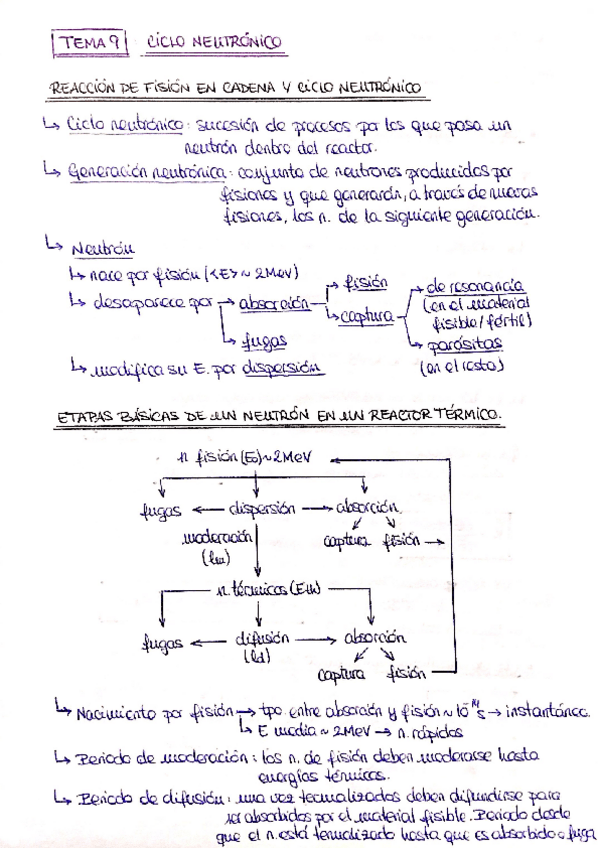 TEMA 9 CICLO NEUTRÓNICO
REACCIÓN DE FISIÓN EN CADENA Y CICLO NEUTRÓNICO
↳ Ciclo neutrónico: sucesión de procesos por los que pasa un
neutrón dentro del reactor.
↳ Generación neutrónica: conjunto de neutrones producidos por
fisiones y que generarán, a través de nuevas
fisiones, los n. de la siguiente generación.
↳ Neutrón
↳ nace por fisión (<E> ~ 2MeV)
↳ desaparece por → absorción → fisión
→ captura → de resonancia
(en el material
fisible/fértil)
↳ fugas
→ parásitas
(en el resto)
↳ modifica su E. por dispersión
ETAPAS BÁSICAS DE UN NEUTRÓN EN UN REACTOR TÉRMICO.
n fisión (E₀) ~ 2MeV
fugas ← dispersión → absorción
moderación
(lm)
captura fisión →
n. térmicos (Eth)
fugas ← difusión → absorción
(ld)
captura fisión
↳ Nacimiento por fisión → tpo. entre absorción y fisión ~ 10⁻¹⁴ s → instantánea.
↳ E media ~ 2MeV → n. rápidos
↳ Periodo de moderación: los n. de fisión deben moderarse hasta
energías térmicas.
↳ Periodo de difusión: una vez termalizados deben difundirse para
ser absorbidos por el material fisible. Periodo desde
que el n. está termalizado hasta que es absorbido o fuga